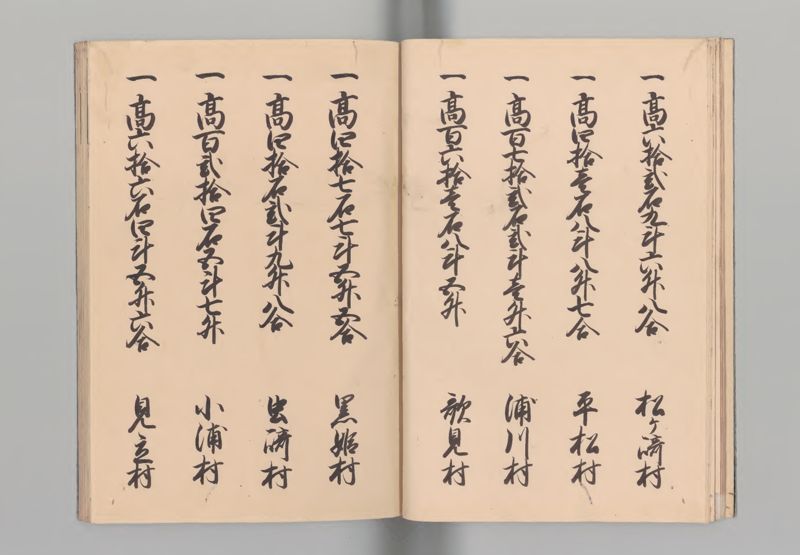 一 高六拾弐石九斗六升八合 松ヶ崎村
一 高四拾壱石八斗八升七合 平松村
一 高百七拾弐石弐斗壱升六合 浦川村
一 高百六拾壱石八斗五升 歌見村
一 高四拾七石七斗五升五合 黒姫村
一 高四拾石弐斗九升八合 虫崎村
一 高百弐拾四石五斗七升 小浦村
一 高六拾六石四斗五升六合 見立村